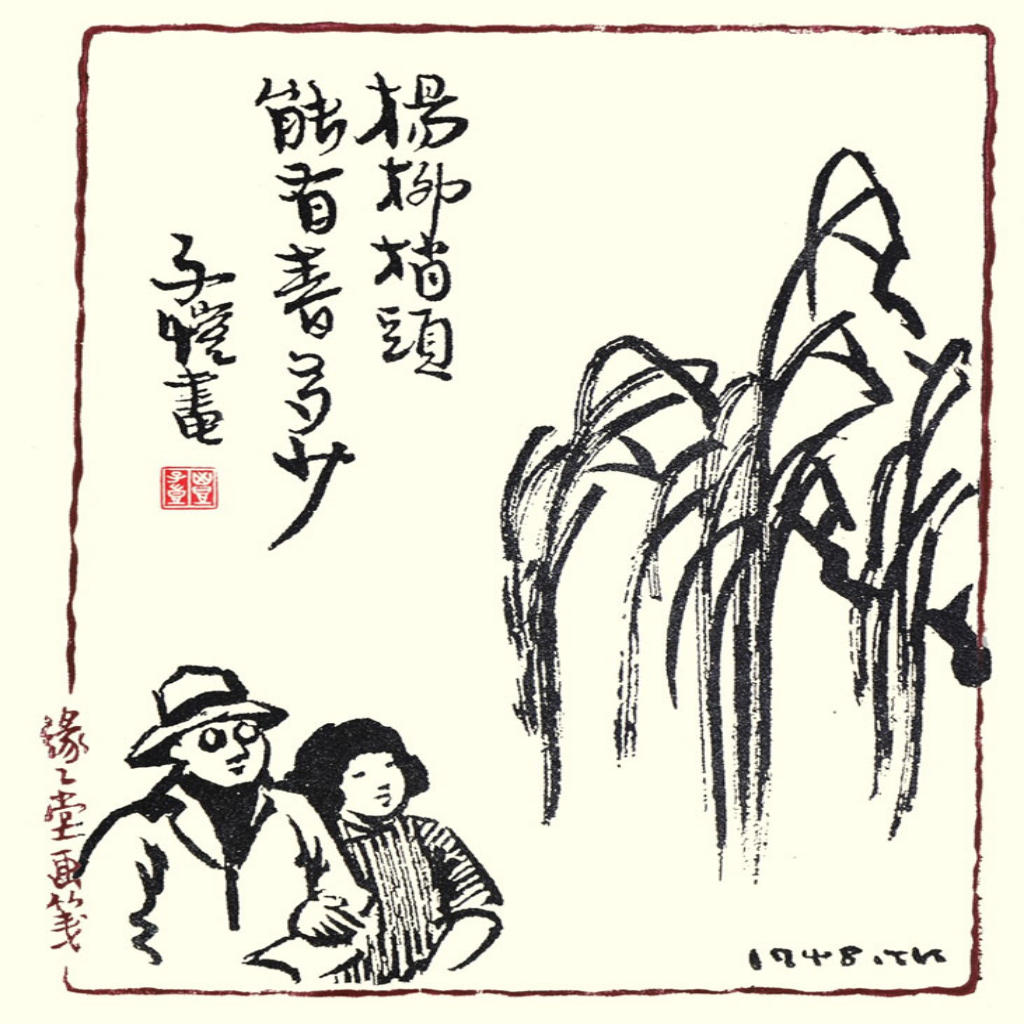 楊柳梢頭
能有春多少
子愷畫
豐子愷
緣緣堂画箋
1948.TK